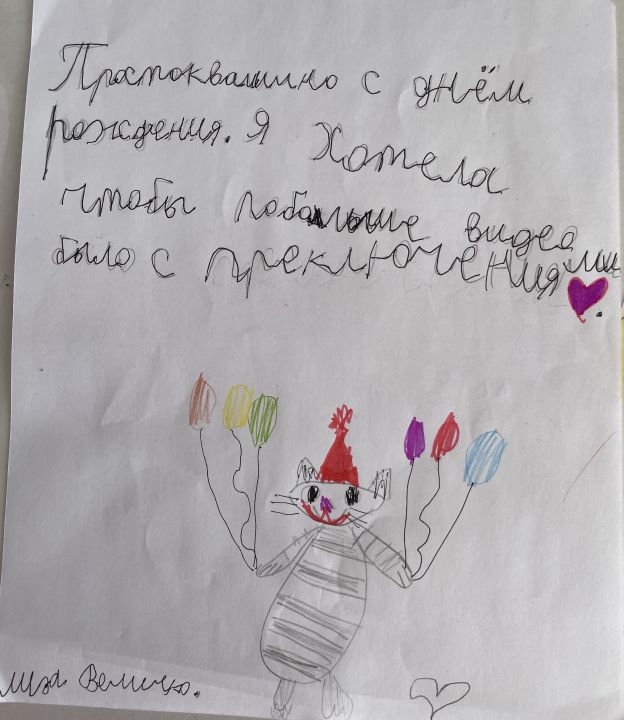 Простоквашино с днём
рождения. Я хотела
чтобы побольше видео
было с преключениями.
Лиза Величко.